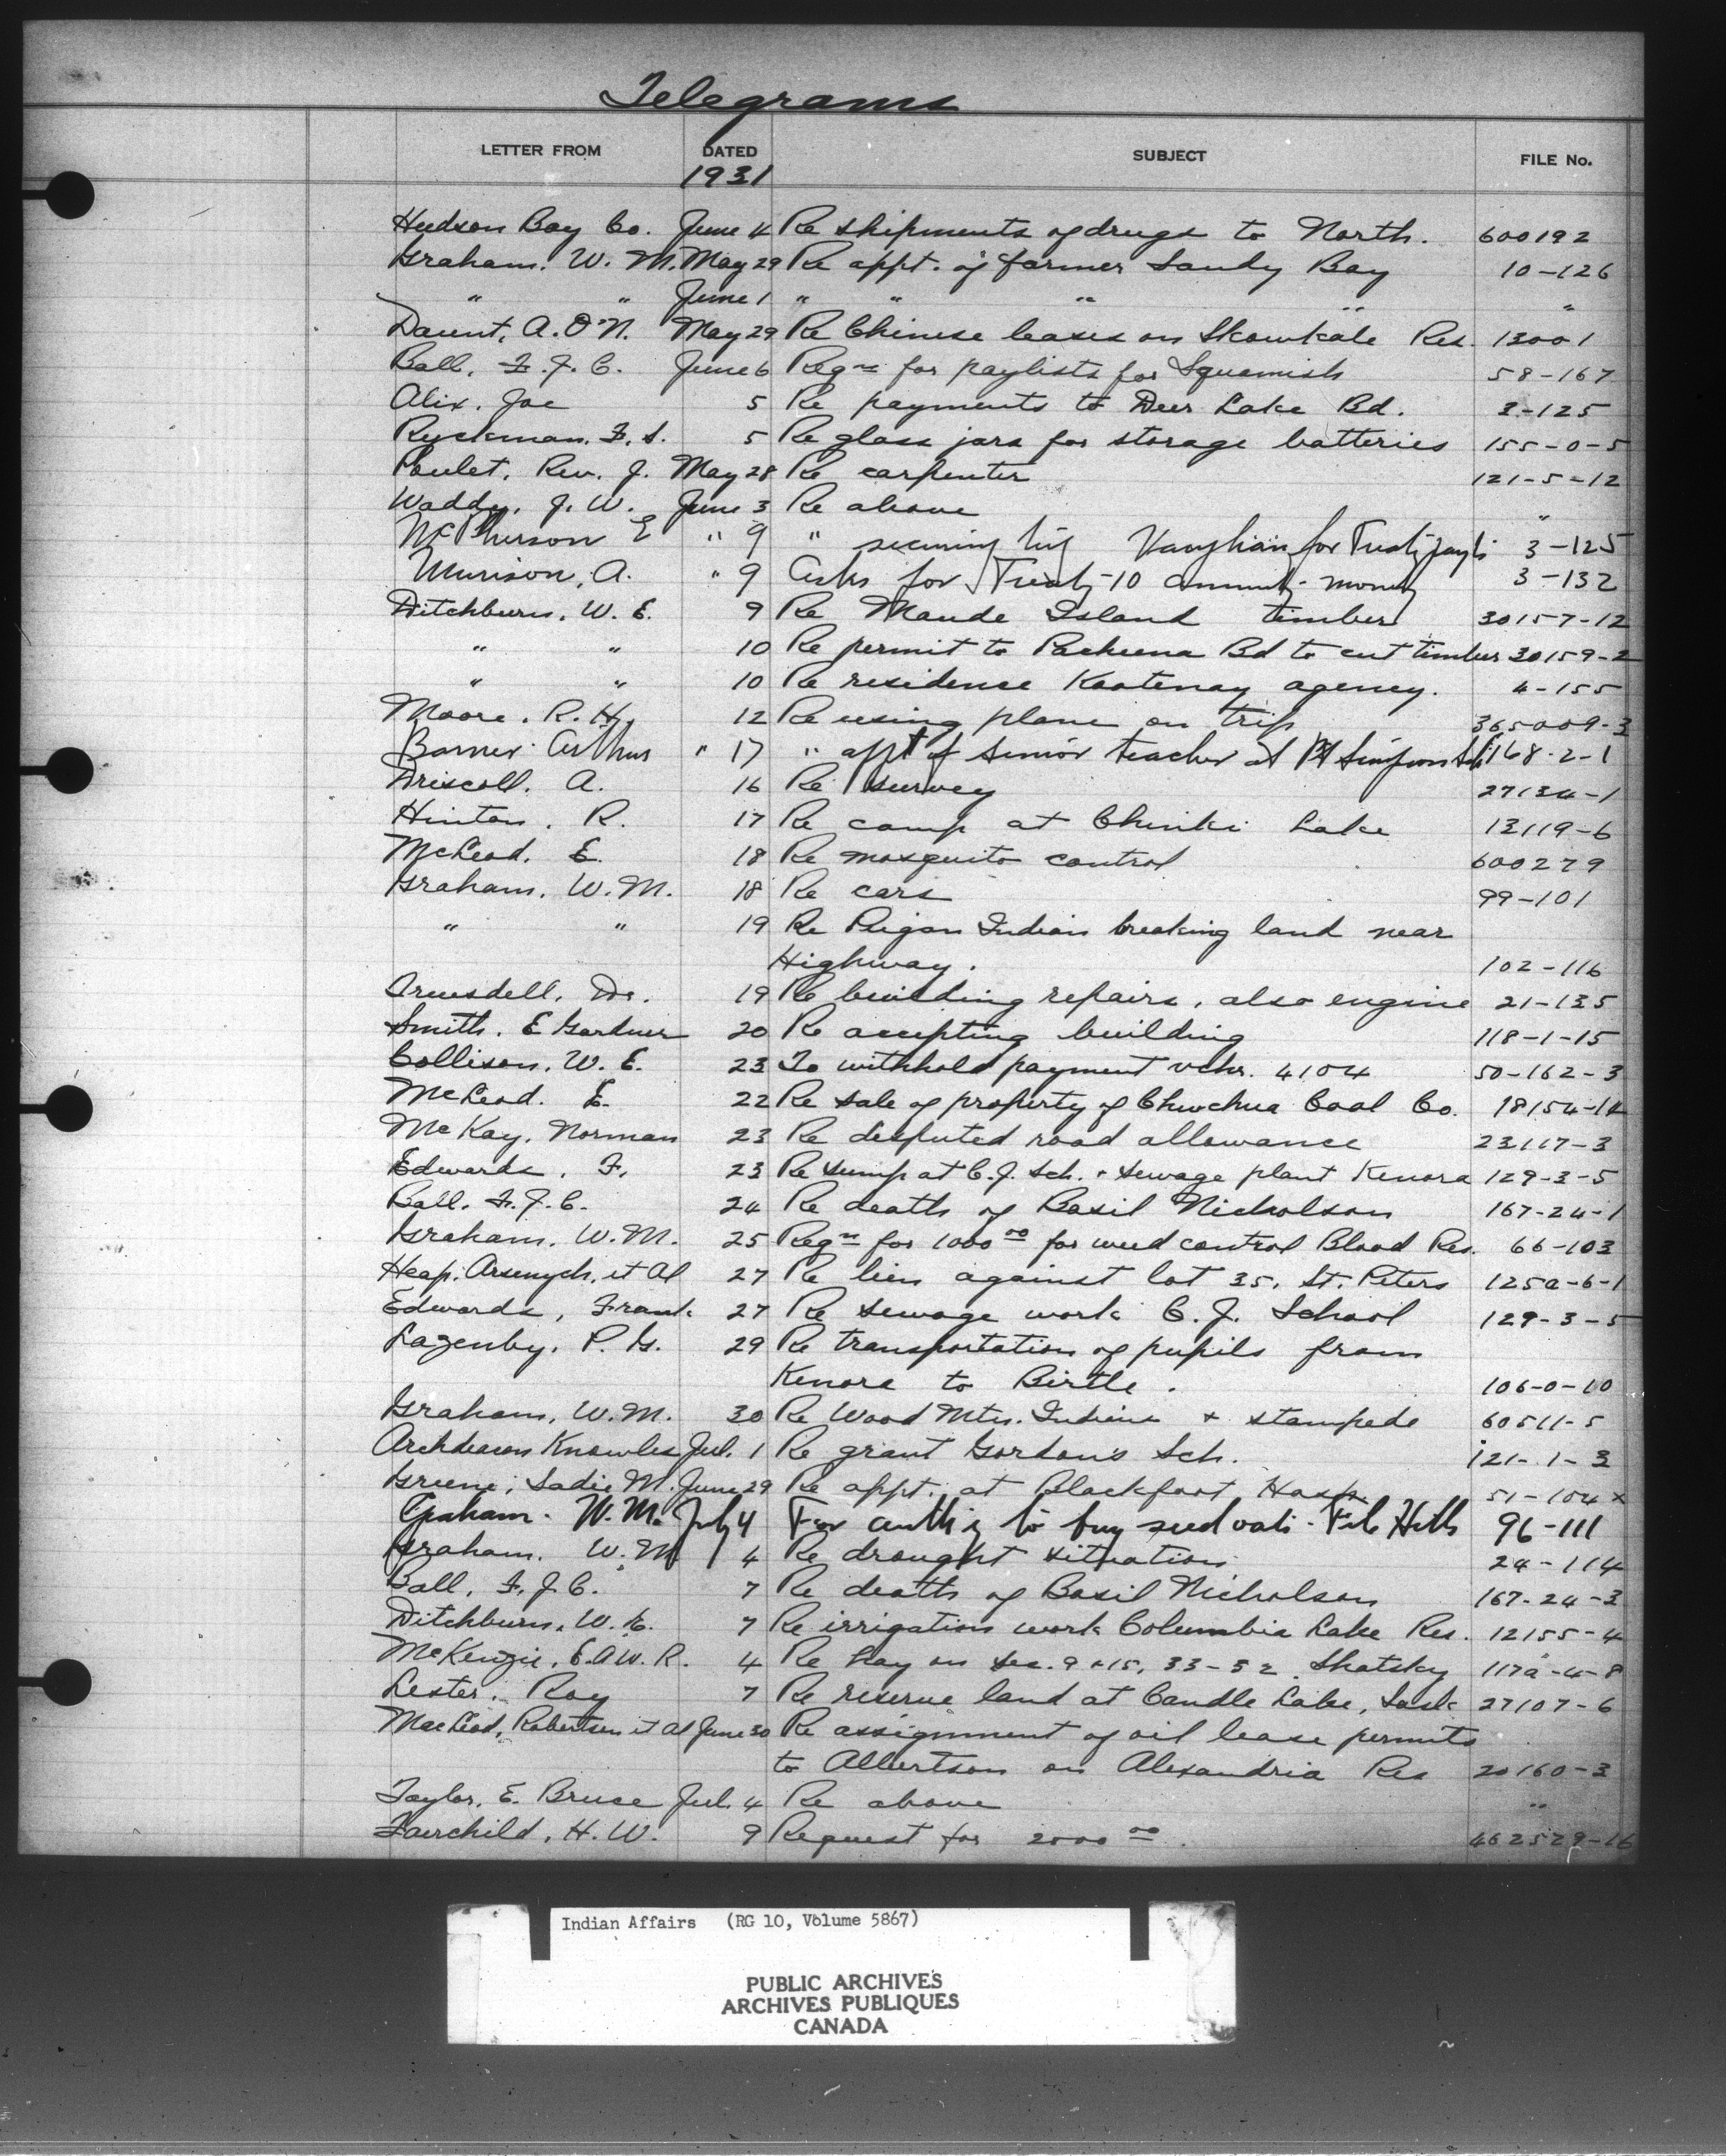 Telegrams
LETTER FROM DATED SUBJECT FILE No.
1931
Hudson Bay Co. June 4 Re shipments of drugs to North. 600192
Graham. W. M. May 29 Re appt. of farmer Sandy Bay 10-126
" " June 1 " " " " "
Daunt, A. O'N. May 29 Re Chinese leases on Skowkale Res. 13001
Ball, F. J. C. June 6 Reqn for paylists for Squamish 58-167
Alix. Joe 5 Re payments to Deer Lake Bd. 3-125
Ryckman. F. S. 5 Re glass jars for storage batteries 155-0-5
Poulet, Rev. J. May 28 Re carpenter 121-5-12
Waddy, J. W. June 3 Re above "
McPherson E " 9 " securing Vaughan for Treaty 3-125
Murison, A. " 9 Asks for Treaty 10 annuity money 3-132
Ditchburn, W. E. 9 Re Maude Island timber 30157-12
" " 10 Re permit to Pacheena Bd to cut timber 30159-2
" " 10 Re residence Kootenay agency. 4-155
Moore. R. H. 12 Re using plane on trip 365009-3
Barner Arthur " 17 " appt of senior teacher at Pt Simpson Sch 168-2-1
Driscoll. A. 16 Re survey 27134-1
Hinton. R. 17 Re camp at Chinki Lake 13119-6
McLeod. E. 18 Re mosquito control 600279
Graham, W. M. 18 Re cars 99-101
" " 19 Re Peigan Indian breaking land near
Highway. 102-116
Truesdell, Dr. 19 Re building repairs, also engine 21-135
Smith. E Gardner 20 Re accepting building 118-1-15
Collison, W. E. 23 To withhold payment vchr. 4104 50-162-3
McLeod. E. 22 Re sale of property of Chuchua Coal Co. 18154-14
McKay, Norman 23 Re disputed road allowance 23117-3
Edwards, F. 23 Re sump at C.J. Sch. + sewage plant Kenora 129-3-5
Ball, F. J. C. 24 Re death of Basil Nicholson 167-24-1
Graham, W. M. 25 Reqn for 1000 00 for weed control Blood Res. 66-103
Heap, Arsenych, et Al 27 Re lien against lot 35, St. Peters 125a-6-1
Edwards, Frank 27 Re sewage work C. J. School 129-3-5
Lazenby, P. G. 29 Re transportation of pupils from
Kenora to Birtle. 106-0-10
Graham, W. M. 30 Re Wood Mtn. Indians + stampede 60511-5
Archdeacon Knowles Jul. 1 Re grant Gordon's Sch. 121-1-3
Greene, Sadie M. June 29 Re appt. at Blackfoot Hosp. 51-104 x
Graham. W. M. July 4 For auth'y to buy seed oats - File Hills 96-111
Graham. W. M 4 Re drought situation 24-114
Ball, F. J. C. 7 Re death of Basil Nicholson 167-24-3
Ditchburn, W. E. 7 Re irrigation work Columbia Lake Res. 12155-4
McKenzie, E. A. W. R. 4 Re hay on sec. 9 + 15, 33-32. Shatsky 117a-4-8
Lester, Roy 7 Re reserve land at Candle Lake, Sask 27107-6
MacLeod, Robertson et Al June 30 Re assignment of oil lease permits
to Albertson on Alexandria Res 20160-3
Taylor, E. Bruce Jul. 4 Re above "
Fairchild, H. W. 9 Request for 2000 00. 462529-16
Indian Affairs (RG 10, Volume 5867)
PUBLIC ARCHIVES
ARCHIVES PUBLIQUES
CANADA